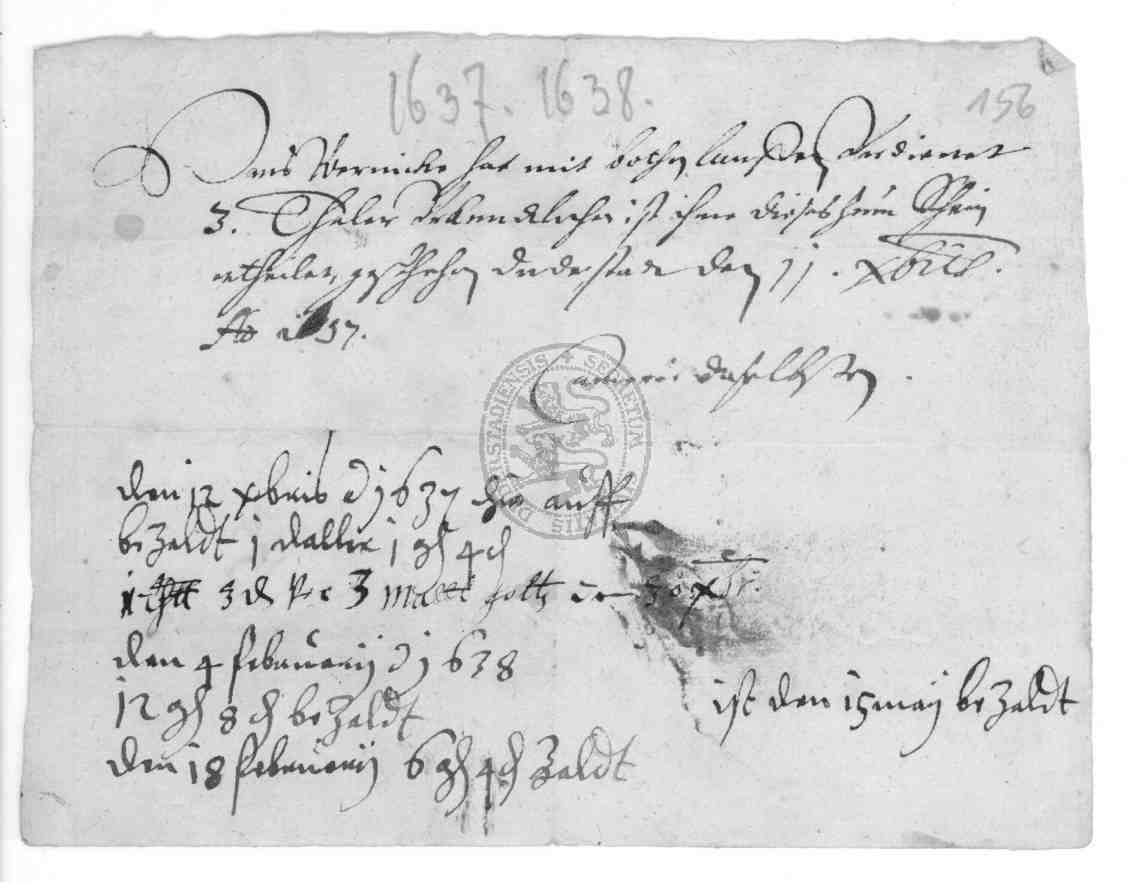 1637. 1638.
156
Hans Wernicke hat mit bothen lauffen Verdienet
3. Thaler Urkundlichen ist ihme dieser Schein
ertheilet, geschehen Duderstadt den 11. Xbris.
Ao 1637.
Camerer daselbsten.
SECRETUM DUDERSTADIENSIS
den 12 xbris 1637 hir auff
bezaldt 1 daller 1 gl 4 d
3 d 3 holtz
den 4 Februarij 1638
12 gl 8 d bezaldt
den 18 Februarij 6 gl 4 d Zaldt
ist den 15 maij bezaldt